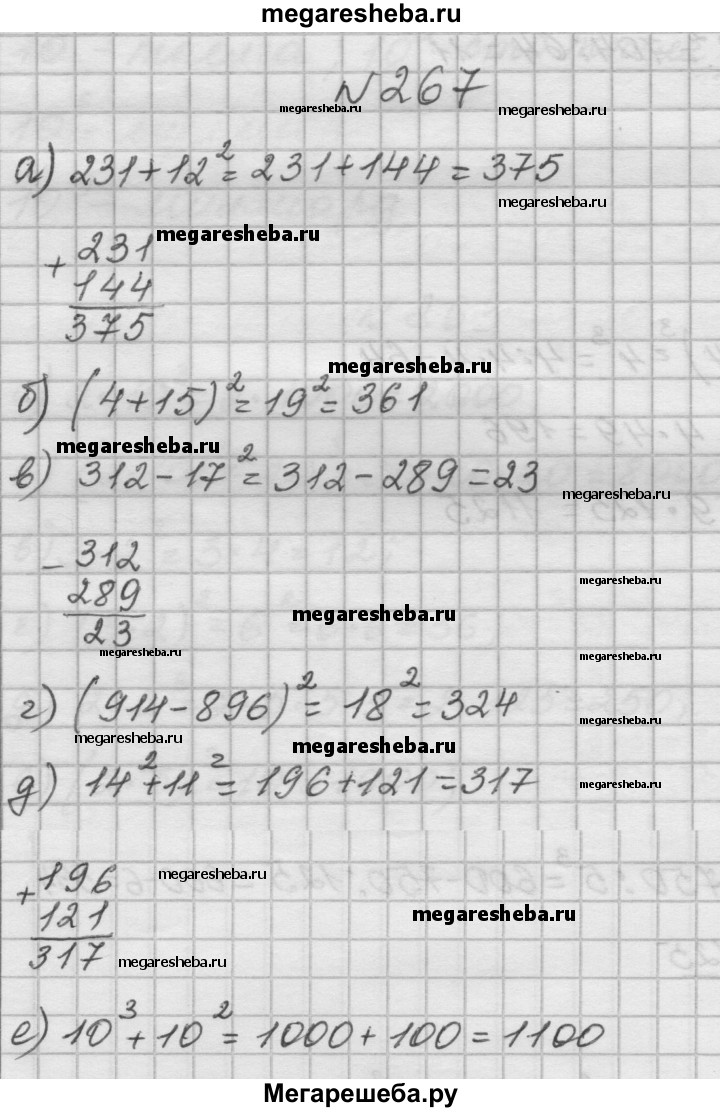 megaresheba.ru
№267
megaresheba.ru megaresheba.ru
а) 231+12²=231+144=375
megaresheba.ru
megaresheba.ru
+231
144
375
megaresheba.ru
б) (4+15)²=19²=361
megaresheba.ru
в) 312-17²=312-289=23
megaresheba.ru
-312
289
23
megaresheba.ru
megaresheba.ru
megaresheba.ru
megaresheba.ru
г) (914-896)²=18²=324
megaresheba.ru
megaresheba.ru
megaresheba.ru
д) 14²+11²=196+121=317
megaresheba.ru
+196
121
317
megaresheba.ru
megaresheba.ru
megaresheba.ru
е) 10³+10²=1000+100=1100
Мегарешеба.ру